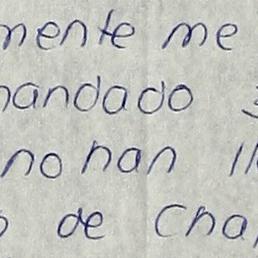 mente me
andado
no han ll
de Cha